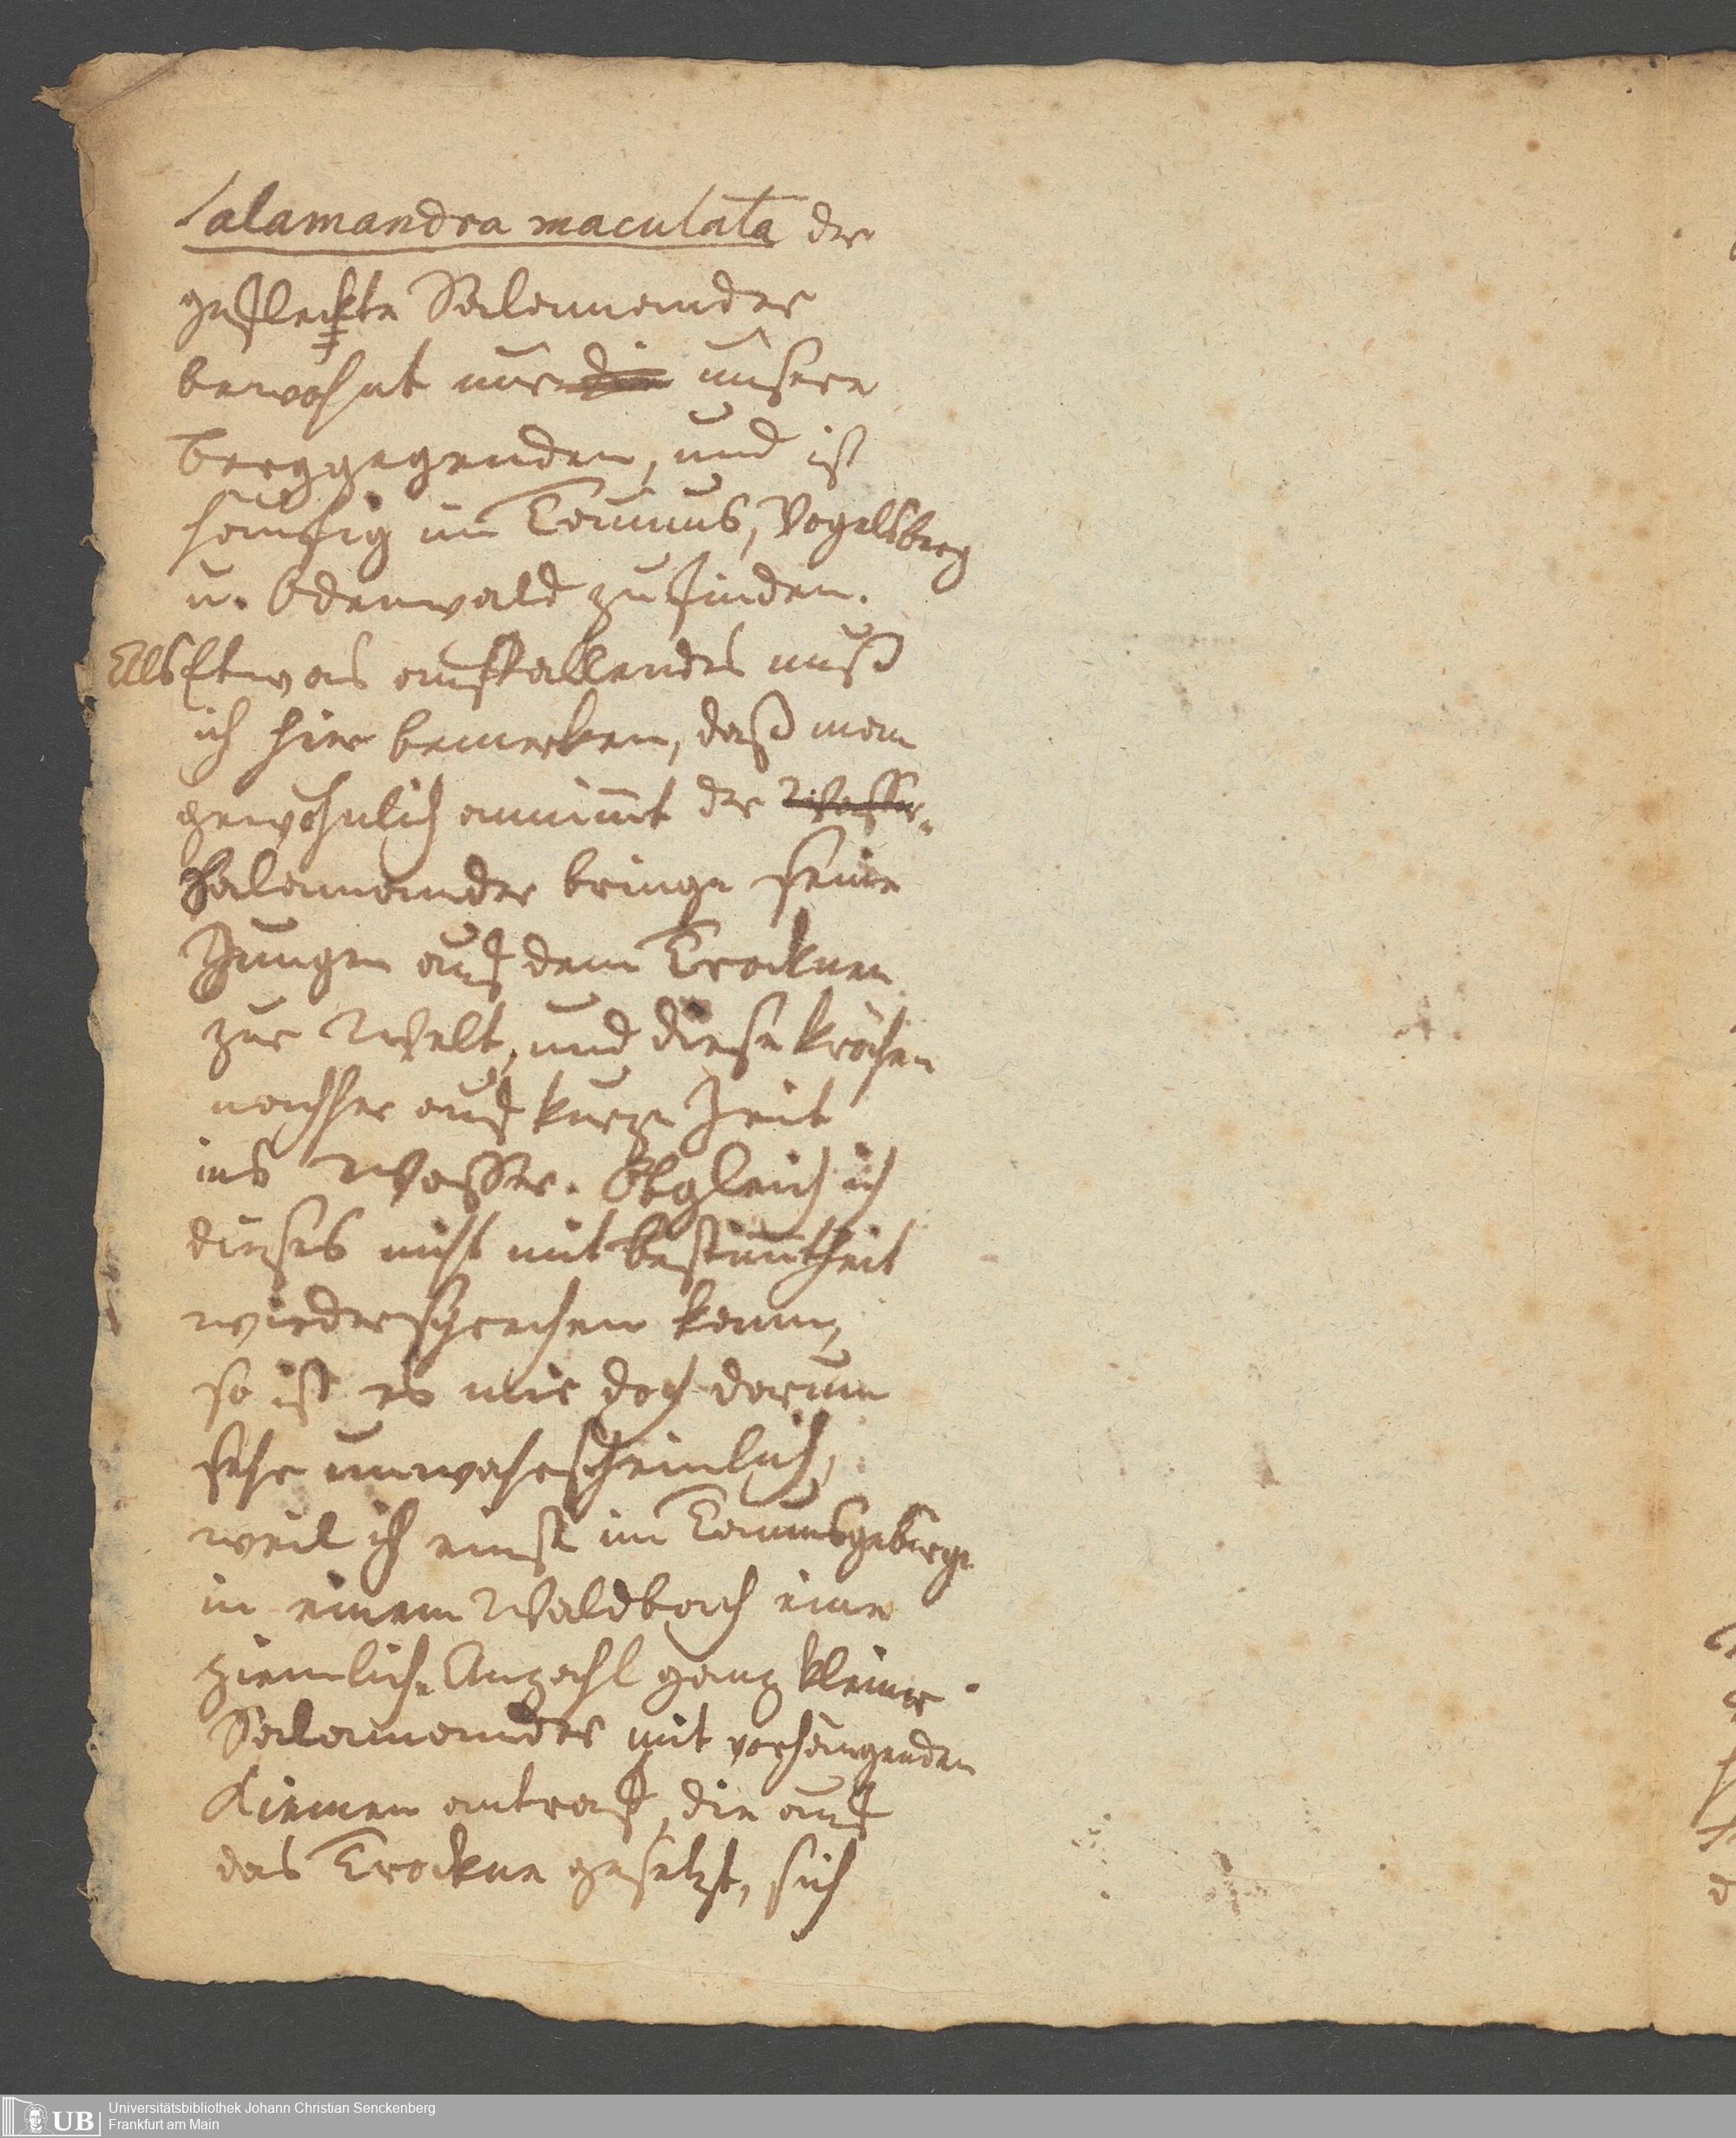 Salamandra maculata der
gefleckte Salamander
bewohnt nur die unsere
Berggegenden, und ist
häufig im Taunus, Vogelsberg
u. Odenwald zu finden.
Als Etwas auffallendes muß
ich hier bemerken, daß man
gewöhnlich annim̄t der Wasser-
Salamander bringe seine
Jungen auf dem Trocknen
zur Welt, und diese kröchen
nachher auf kurze Zeit
ins Wasser. Obgleich ich
dieses nicht mit Bestim̄theit
wiedersprechen kann,
so ist es mir doch darum
sehr unwahrscheinlich,
weil ich einst im Taunusgebirge
in einem Waldbach eine
ziemliche Anzahl ganz kleiner
Salamander mit vorhängenden
Kiemen antraf, die auf
das Trockne gesetzt, sich
UB
Universitätsbibliothek Johann Christian Senckenberg
Frankfurt am Main